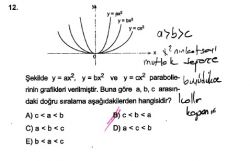 12.
y
y = ax²
y = bx²
y = cx²
x
0
a>b>c
x² nin katsayı
mutlak
Şekilde y = ax², y = bx² ve y = cx² parabolle-
rinin grafikleri verilmiştir. Buna göre a, b, c arasın-
daki doğru sıralama aşağıdakilerden hangisidir?
büyüdükçe
kollar
kapanır
A) c < a < b
B) c < b < a
C) a < b < c
D) a < c < b
E) b < a < c